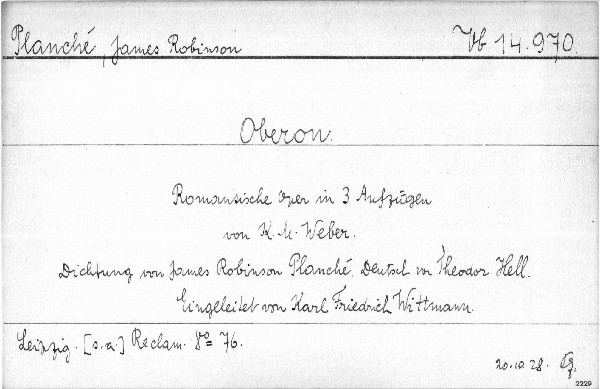 Planché, James Robinson Vb 14.970.
Oberon.
Romantische Oper in 3 Aufzügen
von K. M. Weber.
Dichtung von James Robinson Planché. Deutsch von Theodor Hell.
Eingeleitet von Karl Friedrich Wittmann.
Leipzig. [s.a.] Reclam. 8° 76.
20.10.28.
2229